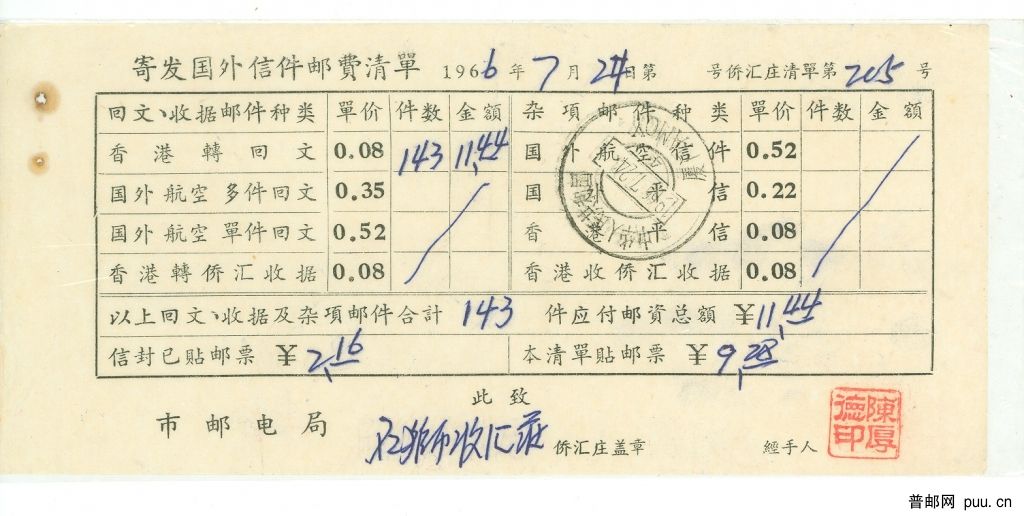 寄发国外信件邮費清單 1966年7月24日第 号侨汇庄清單第205号
回文、收据邮件种类 單价 件数 金额 杂項邮件种类 單价 件数 金额
香港轉回文 0.08 143 11,44 国外航空信件 0.52
国外航空多件回文 0.35 国外平信 0.22
国外航空單件回文 0.52 香港平信 0.08
香港轉侨汇收据 0.08 香港收侨汇收据 0.08
以上回文、收据及杂項邮件合計 143 件应付邮資总額 ¥11,44
信封已貼邮票 ¥2,16 本清單貼邮票 ¥9,28
此致
市邮电局 侨汇庄盖章 經手人
陳厚德印
普邮网 puu.cn